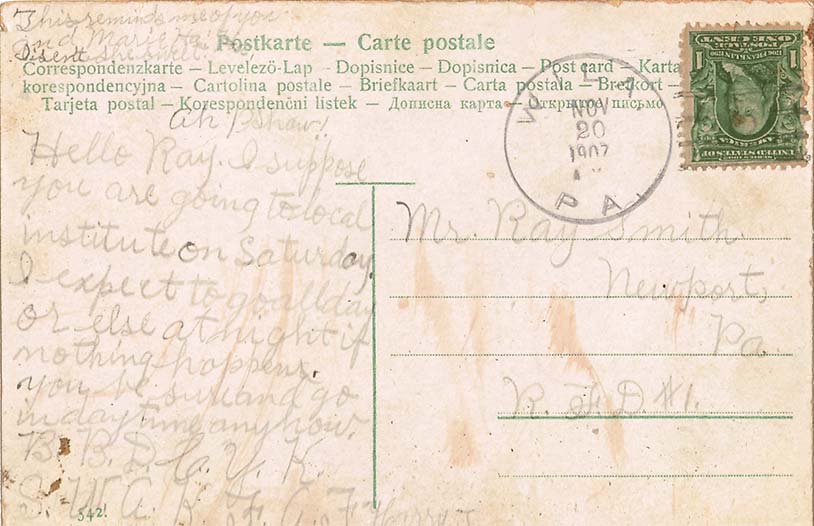 This reminds me of you
and Marie
Postkarte — Carte postale
Correspondenzkarte – Levelezö-Lap – Dopisnice – Dopisnica – Post card – Karta
korespondencyjna – Cartolina postale – Briefkaart – Carta postala – Brefkort –
Tarjeta postal – Korespondenčni listek – Дописна карта – Открытое письмо
Ah Pshaw!
Hello Ray. I suppose
you are going to local
institute on Saturday.
I expect to go all day
or else at night if
nothing happens.
you be sure and go
in day time any how.
B. B. D. C. Y. K.
S. W. A. K.
542!
NOV
20
1907
PA.
Mr. Ray Smith.
Newport,
Pa.
R. F. D. #1.
UNITED STATES OF
AMERICA
FRANKLIN
POSTAGE
ONE CENT
1 1